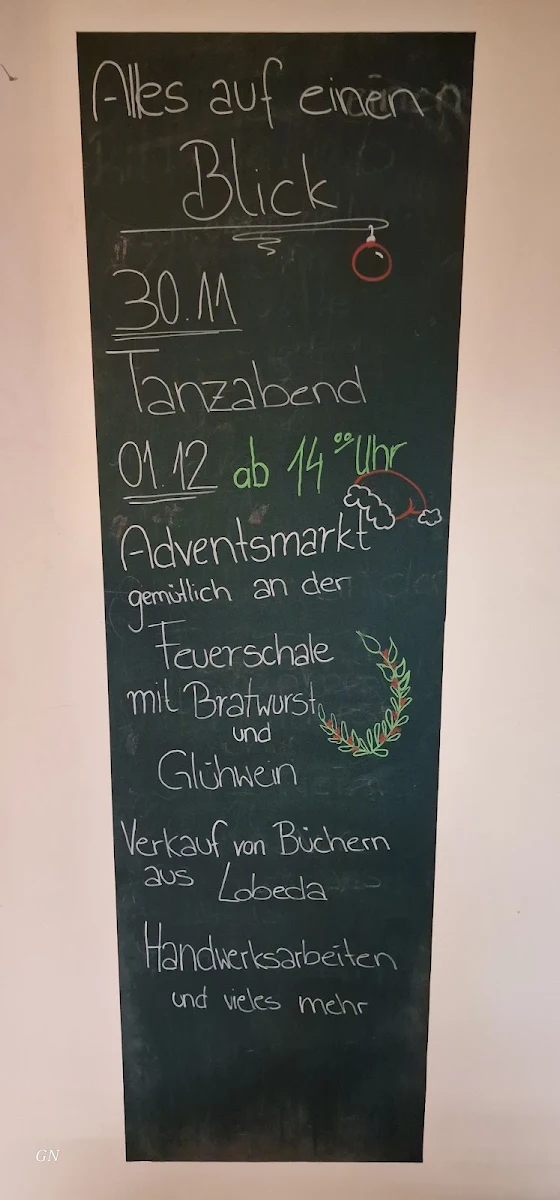 Alles auf einen
Blick
30.11
Tanzabend
01.12 ab 14⁰⁰ Uhr
Adventsmarkt
gemütlich an der
Feuerschale
mit Bratwurst
und
Glühwein
Verkauf von Büchern
aus Lobeda
Handwerksarbeiten
und vieles mehr
GN